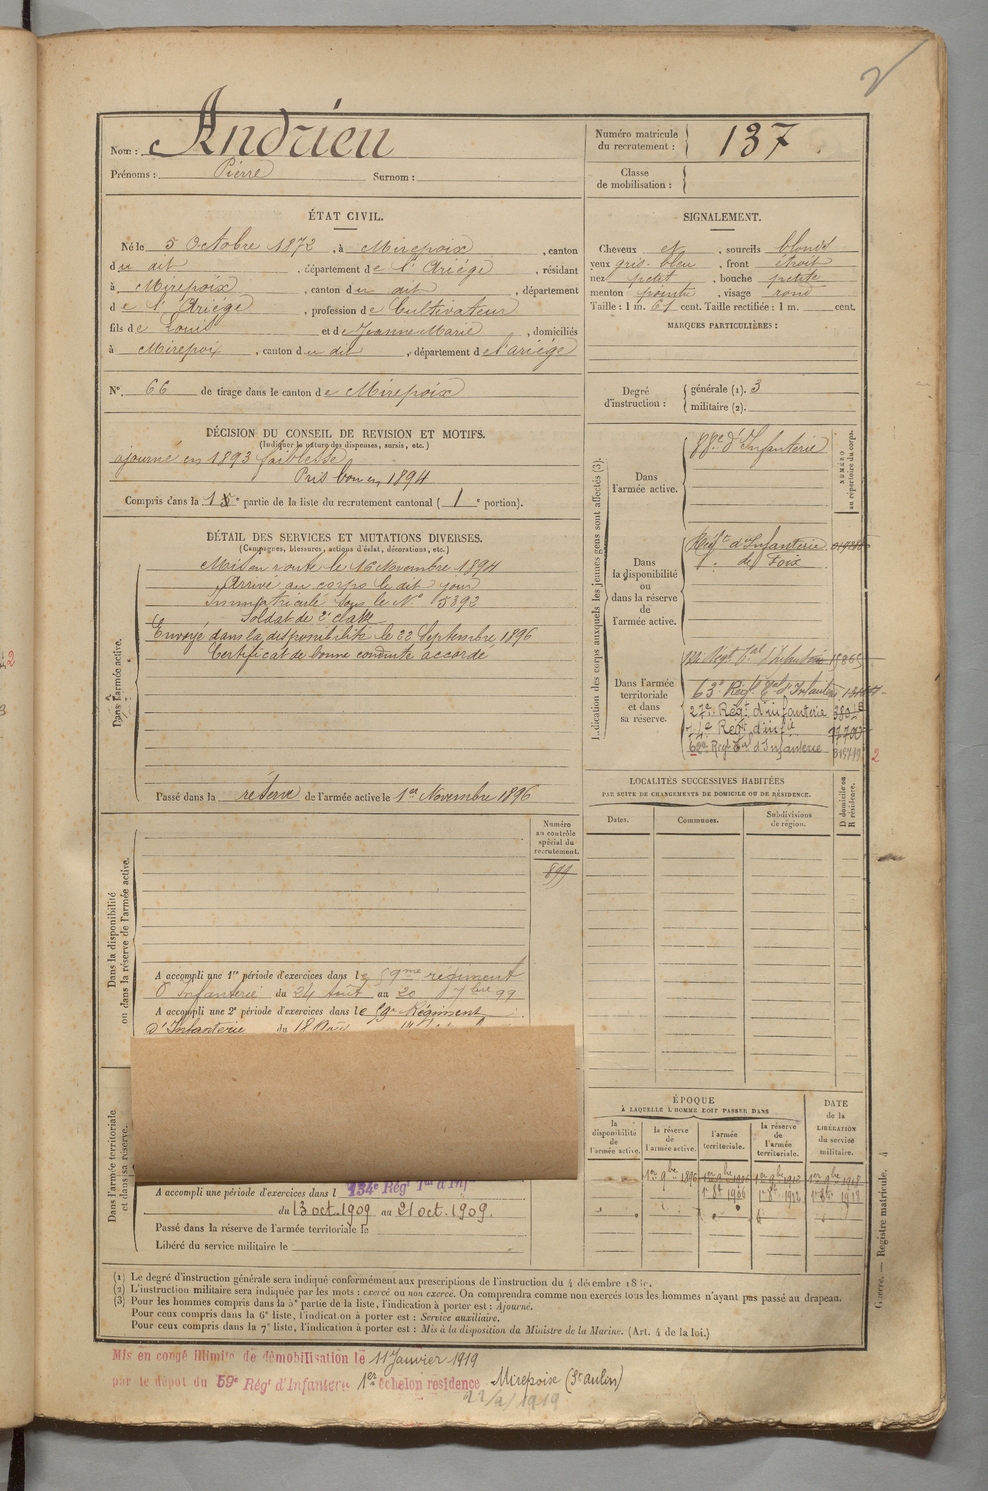 2
Nom : Andrieu
Prénoms : Pierre Surnom :
Numéro matricule du recrutement : 137
Classe de mobilisation :
ÉTAT CIVIL.
Né le 5 Octobre 1872, à Mirepoix, canton
du dit, département de l'Ariège, résidant
à Mirepoix, canton du dit, département
de l'Ariège, profession de Cultivateur
fils de Louis et de Jeanne Marie, domiciliés
à Mirepoix, canton du dit, département de l'ariège
N°. 66 de tirage dans le canton de Mirepoix
SIGNALEMENT.
Cheveux et, sourcils blonds
yeux gris-bleu, front étroit
nez petit, bouche petite
menton pointu, visage rond
Taille : 1 m. 61 cent. Taille rectifiée : 1 m. cent.
MARQUES PARTICULIÈRES :
Degré d'instruction : générale (1). 3
militaire (2).
DÉCISION DU CONSEIL DE REVISION ET MOTIFS.
(Indiquer la nature des dispenses, sursis, etc.)
ajourné en 1893 faiblesse
Pris bon en 1894
Compris dans la 1e partie de la liste du recrutement cantonal ( 1 e portion).
DÉTAIL DES SERVICES ET MUTATIONS DIVERSES.
(Campagnes, blessures, actions d'éclat, décorations, etc.)
Dans l'armée active.
Mis en route le 16 Novembre 1894
Arrivé au corps le dit jour
Immatriculé sous le N° 5392
Soldat de 2e classe
Envoyé dans la disponibilité le 22 Septembre 1896
Certificat de bonne conduite accordé
Passé dans la réserve de l'armée active le 1er Novembre 1896
Indication des corps auxquels les jeunes gens sont affectés (3).
NUMÉRO au répertoire du corps.
Dans l'armée active.
88e d'Infanterie
Dans la disponibilité ou dans la réserve de l'armée active.
Regt d'Infanterie
de Foix
Dans l'armée territoriale et dans sa réserve.
63e Regt Tal d'Infanterie
27e Regt d'infanterie
74e Regt d'inf
62e Regt Tal d'Infanterie
2
LOCALITÉS SUCCESSIVES HABITÉES
PAR SUITE DE CHANGEMENTS DE DOMICILE OU DE RÉSIDENCE.
Dates. Communes. Subdivisions de région.
D domicile ou R résidence.
Dans la disponibilité ou dans la réserve de l'armée active.
Numéro au contrôle spécial du recrutement.
A accompli une 1re période d'exercices dans le 59me régiment
d'Infanterie du 24 Août au 20 7bre 99
A accompli une 2e période d'exercices dans le 59e Régiment
d'Infanterie du 18
Dans l'armée territoriale et dans sa réserve.
A accompli une période d'exercices dans l 134e Régt Tal d'Inf
du 13 oct. 1909 au 21 oct. 1909.
Passé dans la réserve de l'armée territoriale le
Libéré du service militaire le
ÉPOQUE
À LAQUELLE L'HOMME DOIT PASSER DANS
la disponibilité de l'armée active.
la réserve de l'armée active.
l'armée territoriale.
la réserve de l'armée territoriale.
DATE de la LIBÉRATION du service militaire.
1er 9bre 1896 1er 9bre 1906 1er 9bre 1912 1er 9bre 1918
1er 8bre 1906 1er 8bre 1912 1er 8bre 1918
(1) Le degré d'instruction générale sera indiqué conformément aux prescriptions de l'instruction du 4 décembre
(2) L'instruction militaire sera indiquée par les mots : exercé ou non exercé. On comprendra comme non exercés tous les hommes n'ayant pas passé au drapeau.
(3) Pour les hommes compris dans la 5e partie de la liste, l'indication à porter est : Ajourné.
Pour ceux compris dans la 6e liste, l'indication à porter est : Service auxiliaire.
Pour ceux compris dans la 7e liste, l'indication à porter est : Mis à la disposition du Ministre de la Marine. (Art. 4 de la loi.)
Guerre. — Registre matricule. 4
Mis en congé illimité de démobilisation le 11 Janvier 1919
par le dépôt du 59e Régt d'Infanterie 1er échelon résidence Mirepoix (St aulin)